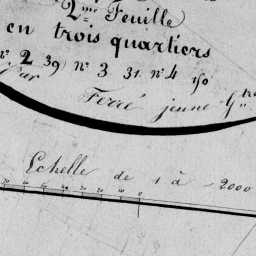 2.me Feuille
en trois quartiers
n° 2 39 n° 3 31 n° 4
Par
Ferré jeune G.tre
Echelle de 1 à 2000